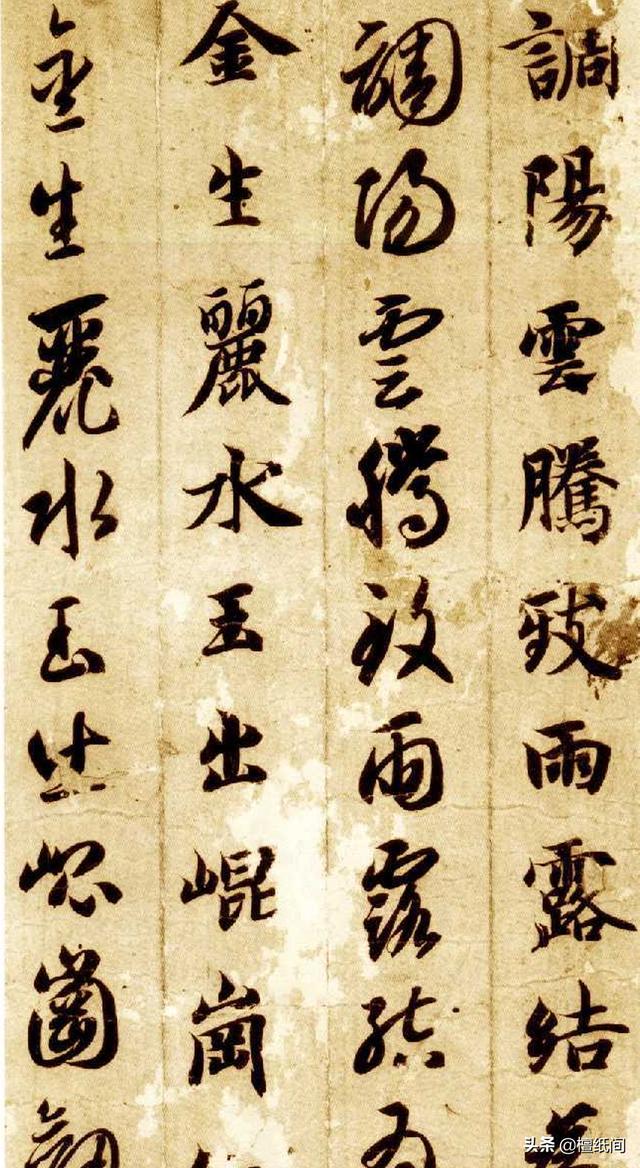 調陽雲騰致雨露結
調陽雲騰致雨露結為
金生麗水玉出崐崗
金生麗水玉出崐崗
头条 @檀纸间